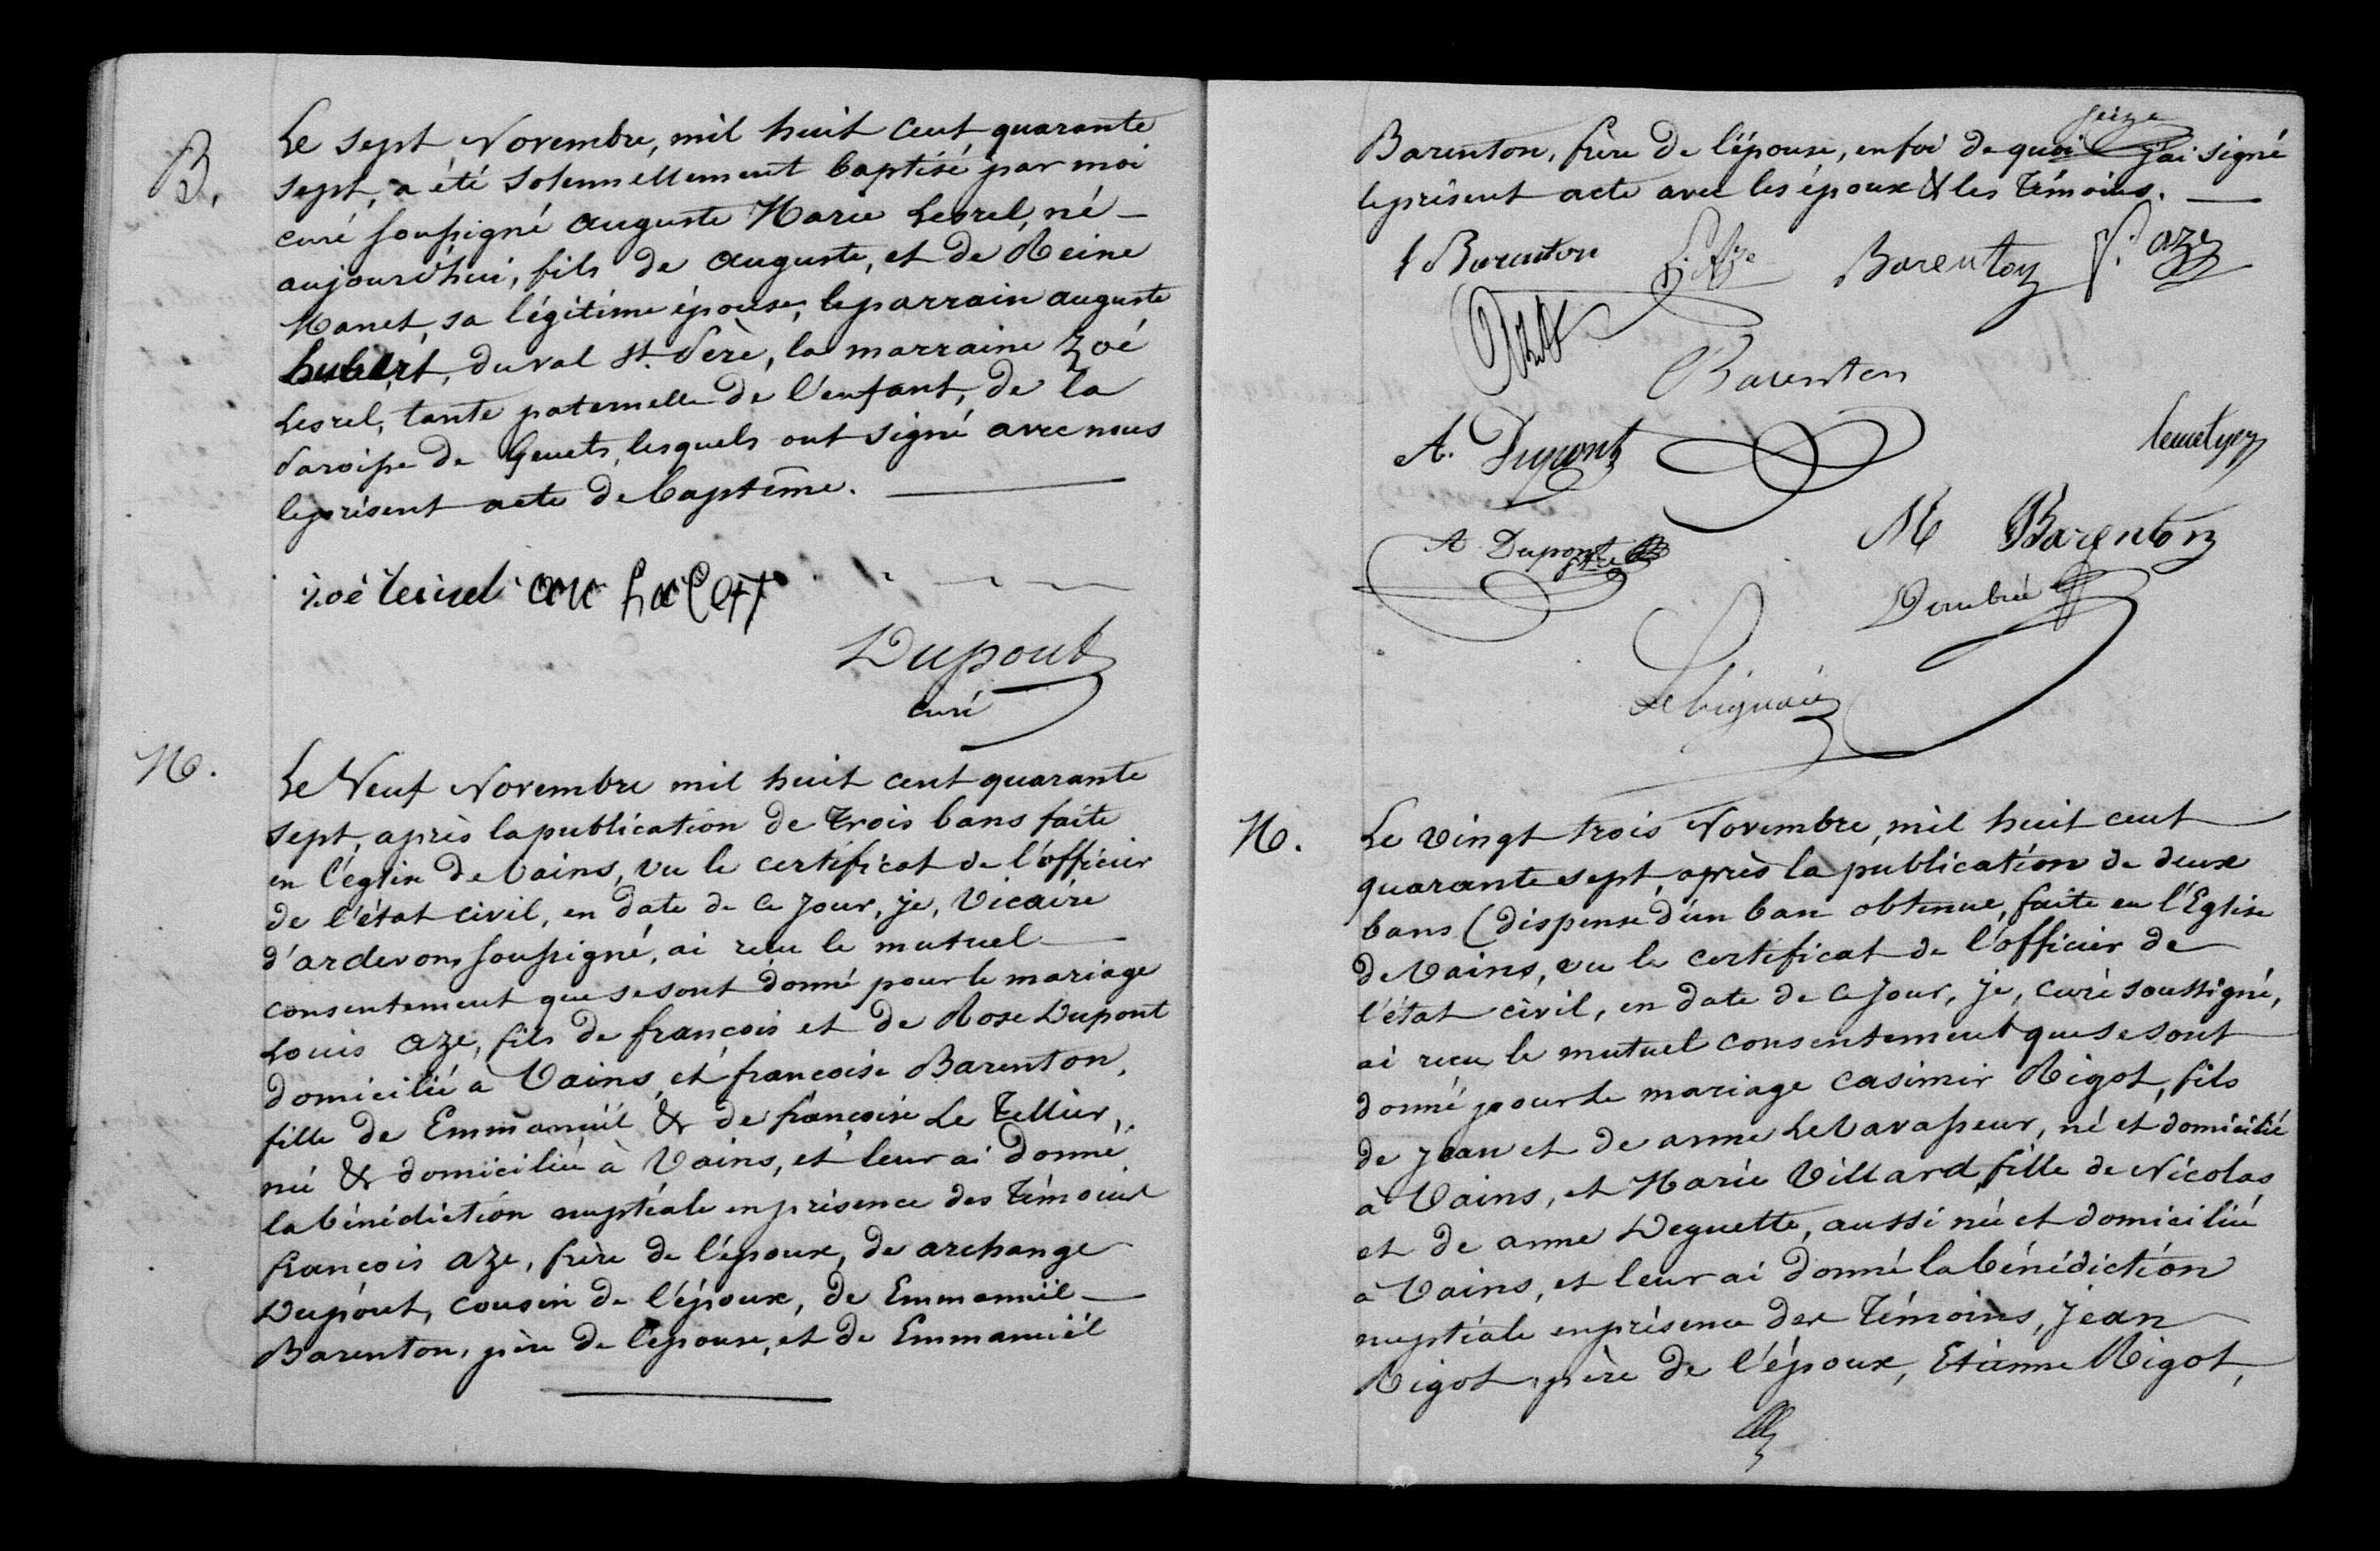 B.
Le sept Novembre, mil huit cent quarante
sept, a été solennellement baptisé par moi
curé soussigné auguste Marie Lesrel, né
aujourd'hui, fils de auguste, et de Reine
Manet, sa légitime épouse, le parrain auguste
hubert, du val St. Père, la marraine Zoé
Lesrel, tante paternelle de l'enfant, de la
Paroisse de Genets, lesquels ont signé avec nous
le présent acte de baptême.
Zoé
Dupont
curé
M.
Le Neuf Novembre mil huit cent quarante
sept, après la publication de trois bans faite
en l'église de Vains, vu le certificat de l'officier
de l'état civil, en date de ce jour, je, Vicaire
d'ardevon soussigné, ai reçu le mutuel
consentement que se sont donné pour le mariage
Louis Aze, fils de françois et de Rose Dupont
domicilié à Vains, et françoise Barenton,
fille de Emmanuël & de françoise Le Tellier,
née & domiciliée à Vains, et leur ai donné
la bénédiction nuptiale en présence des témoins
françois Aze, frère de l'époux, de archange
Dupont, cousin de l'époux, de Emmanuël
Barenton, père de l'épouse, et de Emmanuël
seize
Barenton, frère de l'épouse, en foi de quoi j'ai signé
le présent acte avec les époux & les témoins.
f Barenton L. Aze Barenton f. aze
Barenton
A. Dupont
A Dupont
M Barenton
M.
Le vingt trois Novembre, mil huit cent
quarante sept, après la publication de deux
bans (dispense d'un ban obtenue, faite en l'Eglise
de Vains, vu le certificat de l'officier de
l'état civil, en date de ce jour, je, curé soussigné,
ai reçu le mutuel consentement que se sont
donné pour le mariage Casimir Rigot, fils
de jean et de anne Levavasseur, né et domicilié
à Vains, et Marie Villard, fille de Nicolas
et de anne Deguette, aussi née et domiciliée
à Vains, et leur ai donné la bénédiction
nuptiale en présence des témoins, jean
Rigot, père de l'époux, Etienne Rigot,